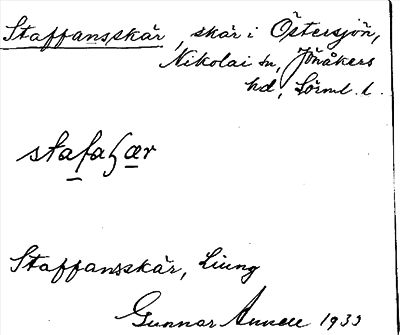 Staffansskär, skär i Östersjön,
Nikolai sn, Jönåkers
hd, Sörml. l.
stafaʃær
Staffansskär, Ljung
Gunnar 1933